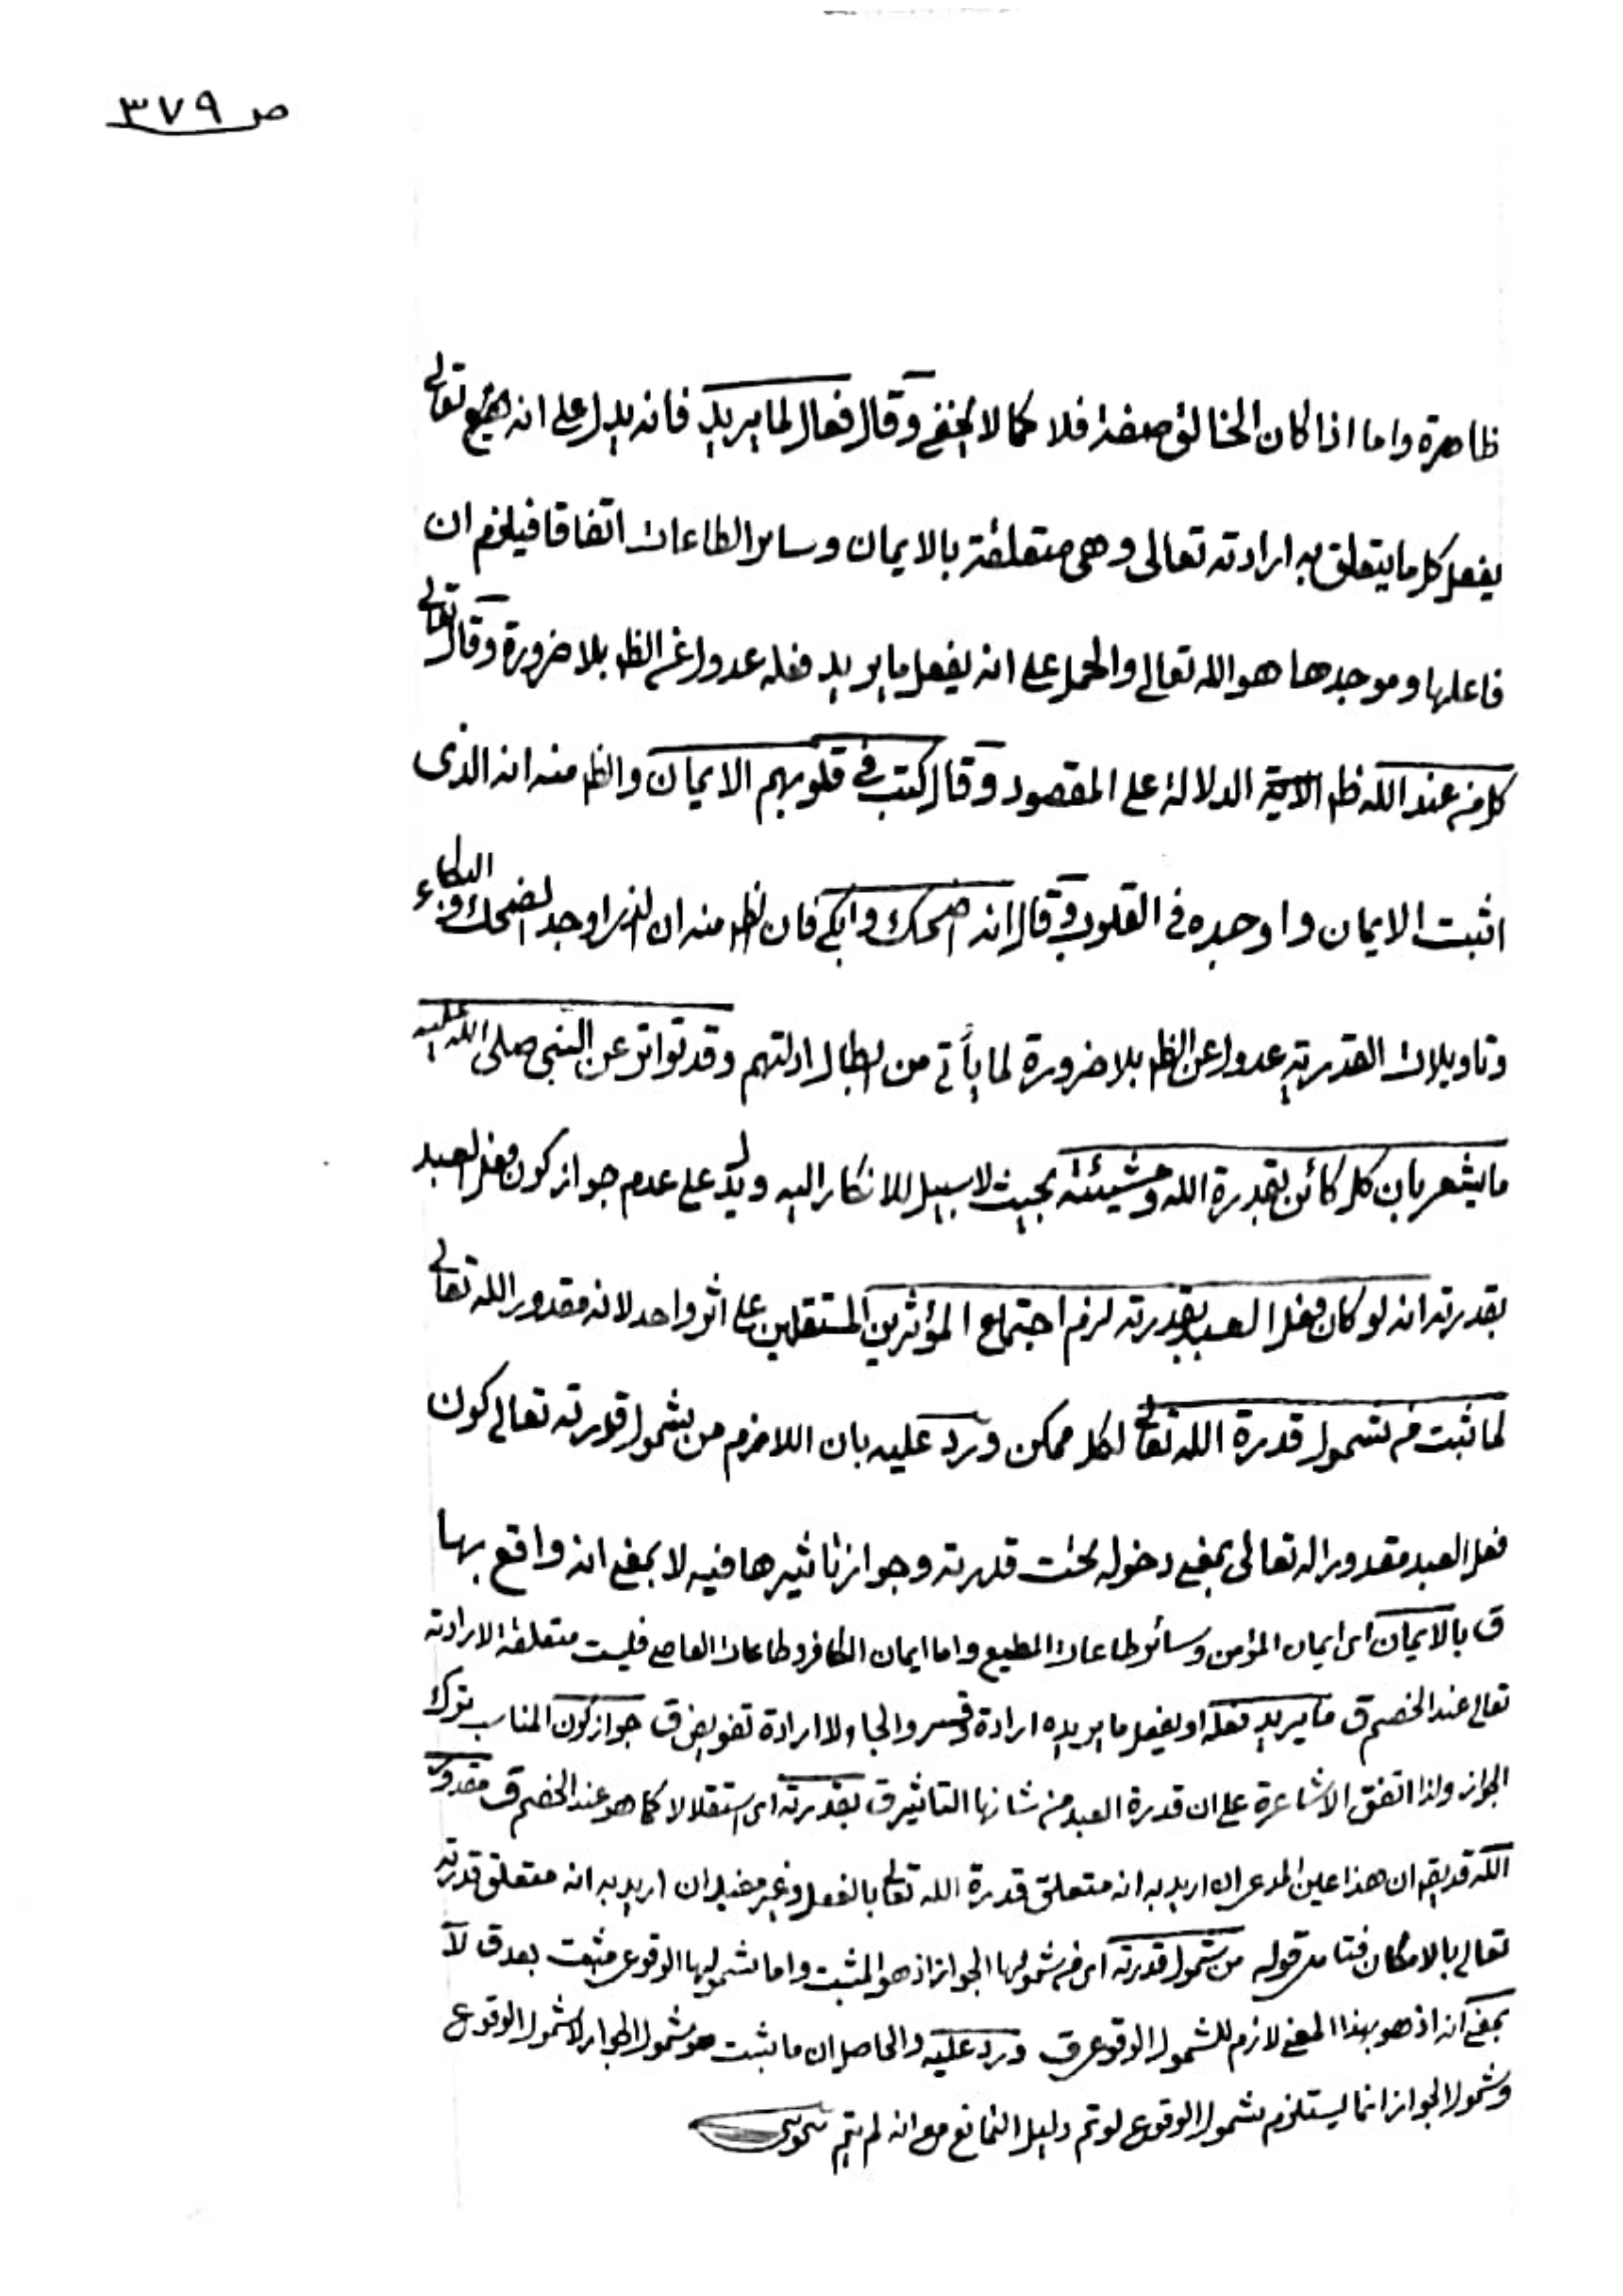 ص ٣٧٩
ظاهرة واما اذا كان الخالق صفة فلا كما لا يخفى وقال فعال لما يريد فانه يدل على انه تعالى
يفعل كل ما يتعلق به ارادته تعالى وهى متعلقة بالايمان وسائر الطاعات اتفاقا فيلزم ان
فاعلها وموجدها هو الله تعالى والحمل على انه يفعل ما يريد فعله عدول عن الظ بلا ضرورة وقال تعالى
كل من عند الله ظ الدلالة على المقصود وقال كتب فى قلوبهم الايمان والظ منه انه الذى
اثبت الايمان واوجده فى القلوب وقال انه اضحك وابكى فان الظ منه ان الذى اوجد الضحك والبكاء
وتاويلات القدرية عدول عن الظ بلا ضرورة لما يأتى من ابطال ادلتهم وقد تواتر عن النبى صلى الله عليه
ما يشعر بان كل كائن بقدرة الله ومشيئته بحيث لا سبيل للانكار اليه ويدل على عدم جواز كون فعل العبد
بقدرته انه لو كان فعل العبد بقدرته لزم اجتماع المؤثرين المستقلين على اثر واحد لانه مقدور الله تعالى
لما ثبت من شمول قدرة الله تعالى لكل ممكن ورد عليه بان اللازم من شمول قدرته تعالى كون
فعل العبد مقدورا له تعالى بمعنى دخوله تحت قدرته وجواز تاثيرها فيه لا بمعنى انه واقع بها
ق بالايمان اى ايمان المؤمن وسائر طاعات المطيع واما ايمان الكافر وطاعات العاصى فليست متعلقة لارادته
تعالى عند الخصم ق ما يريد فعله او يفعل ما يريده ارادة قسر والجاء لا ارادة تفويض ق جواز كون المناسب ترك
الجواز ولذا اتفق الاشاعرة على ان قدرة العبد من شانها التاثير ق بقدرته اى استقلالا كما هو عند الخصم ق مقدور
الله قد يقه ان هذا عين المدعى ان اريد به انه متعلق قدرة الله تعالى بالفعل وغير مفيد ان اريد به انه متعلق قدرته
تعالى بالامكان فتامل قوله من شمول قدرته اى من شمولها الجواز اذ هو المثبت واما شمولها الوقوعى مثبت بعد ق لا
بمعنى انه اذ هو بهذا المعنى لازم للشمول الوقوعى ق ورد عليه والحاصل ان ما ثبت هو شمول الجواز لا شمول الوقوع
وشمول الجواز انما يستلزم شمول الوقوع لو تم دليل التمانع مع انه لم يتم